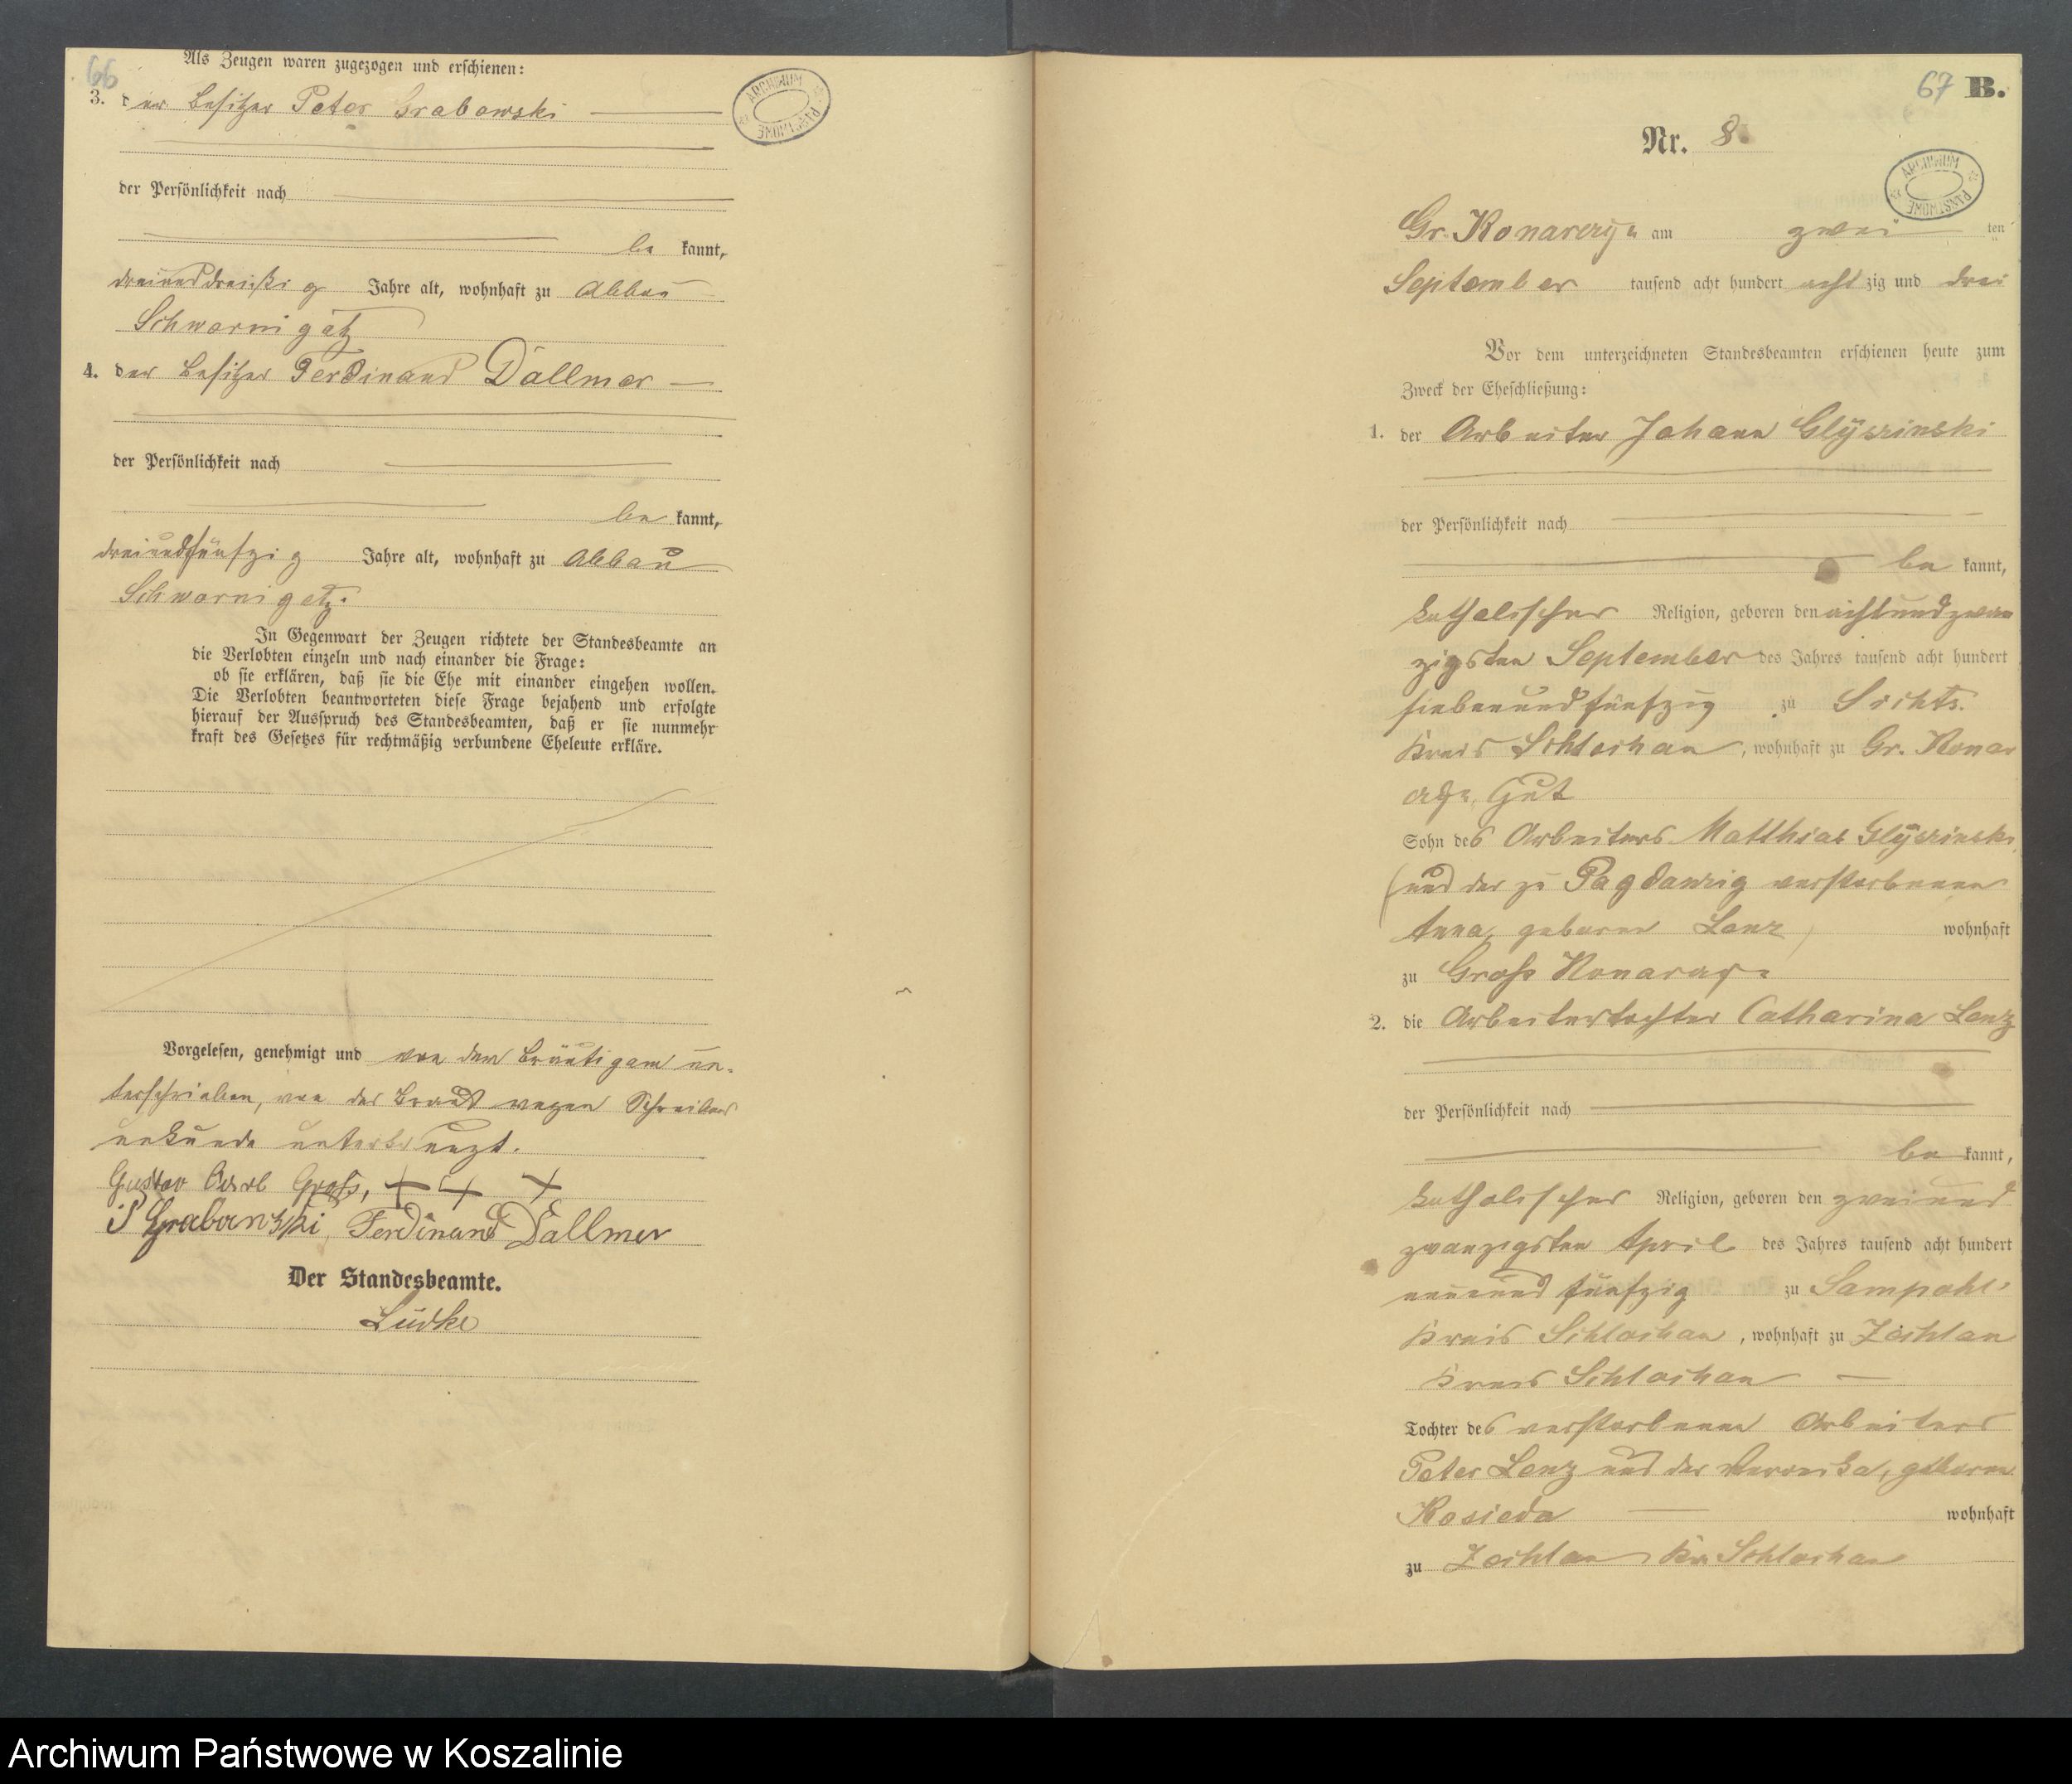 66
Als Zeugen waren zugezogen und erschienen:
3. der Besitzer Peter Grabowski
ARCHIWUM PAŃSTWOWE
der Persönlichkeit nach
be kannt,
dreiunddreißig Jahre alt, wohnhaft zu Abbau
Schwarnigatz
4. der Besitzer Ferdinand Dallmer
der Persönlichkeit nach
be kannt,
dreiundfünfzig Jahre alt, wohnhaft zu Abbau
Schwornigatz.
In Gegenwart der Zeugen richtete der Standesbeamte an
die Verlobten einzeln und nach einander die Frage:
ob sie erklären, daß sie die Ehe mit einander eingehen wollen.
Die Verlobten beantworteten diese Frage bejahend und erfolgte
hierauf der Ausspruch des Standesbeamten, daß er sie nunmehr
kraft des Gesetzes für rechtmäßig verbundene Eheleute erkläre.
Vorgelesen, genehmigt und von dem Bräutigam un-
terschrieben, von der Braut wegen Schreibens
unkunde unterkreuzt.
Gustav Carl Groß, + + +
Grabowski, Ferdinand Dallmer
Der Standesbeamte.
Lüdke
67 B.
Nr. 8.
ARCHIWUM PAŃSTWOWE
Gr. Konarczyn am zwei ten
September tausend acht hundert acht zig und drei
Vor dem unterzeichneten Standesbeamten erschienen heute zum
Zweck der Eheschließung:
1. der Arbeiter Johann Glyszinski
der Persönlichkeit nach
be kannt,
katholischer Religion, geboren den achtundzwan
zigsten September des Jahres tausend acht hundert
siebenundfünfzig zu
Kreis Schlochau, wohnhaft zu Gr. Konar
czyn, Gut
Sohn des Arbeiters Matthias Glyszinski,
(und der zu Pagdanzig verstorbenen
Anna, geborne Lenz) wohnhaft
zu Groß Konarczyn
2. die Arbeitertochter Catharina Lenz
der Persönlichkeit nach
be kannt,
katholischer Religion, geboren den zweiund
zwanzigsten April des Jahres tausend acht hundert
neunundfünfzig zu Sampohl,
Kreis Schlochau, wohnhaft zu Zechlau
Kreis Schlochau
Tochter des verstorbenen Arbeiters
Peter Lenz und der geborne
Kosieda wohnhaft
zu Zechlau Kr. Schlochau
Archiwum Państwowe w Koszalinie